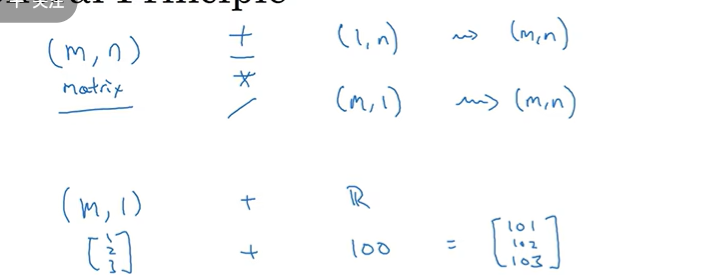 关注
Principle
(m, n) + (1, n) ⇝ (m, n)
matrix - * / (m, 1) ⇝ (m, n)
(m, 1) + ℝ
[1 2 3] + 100 = [101 102 103]